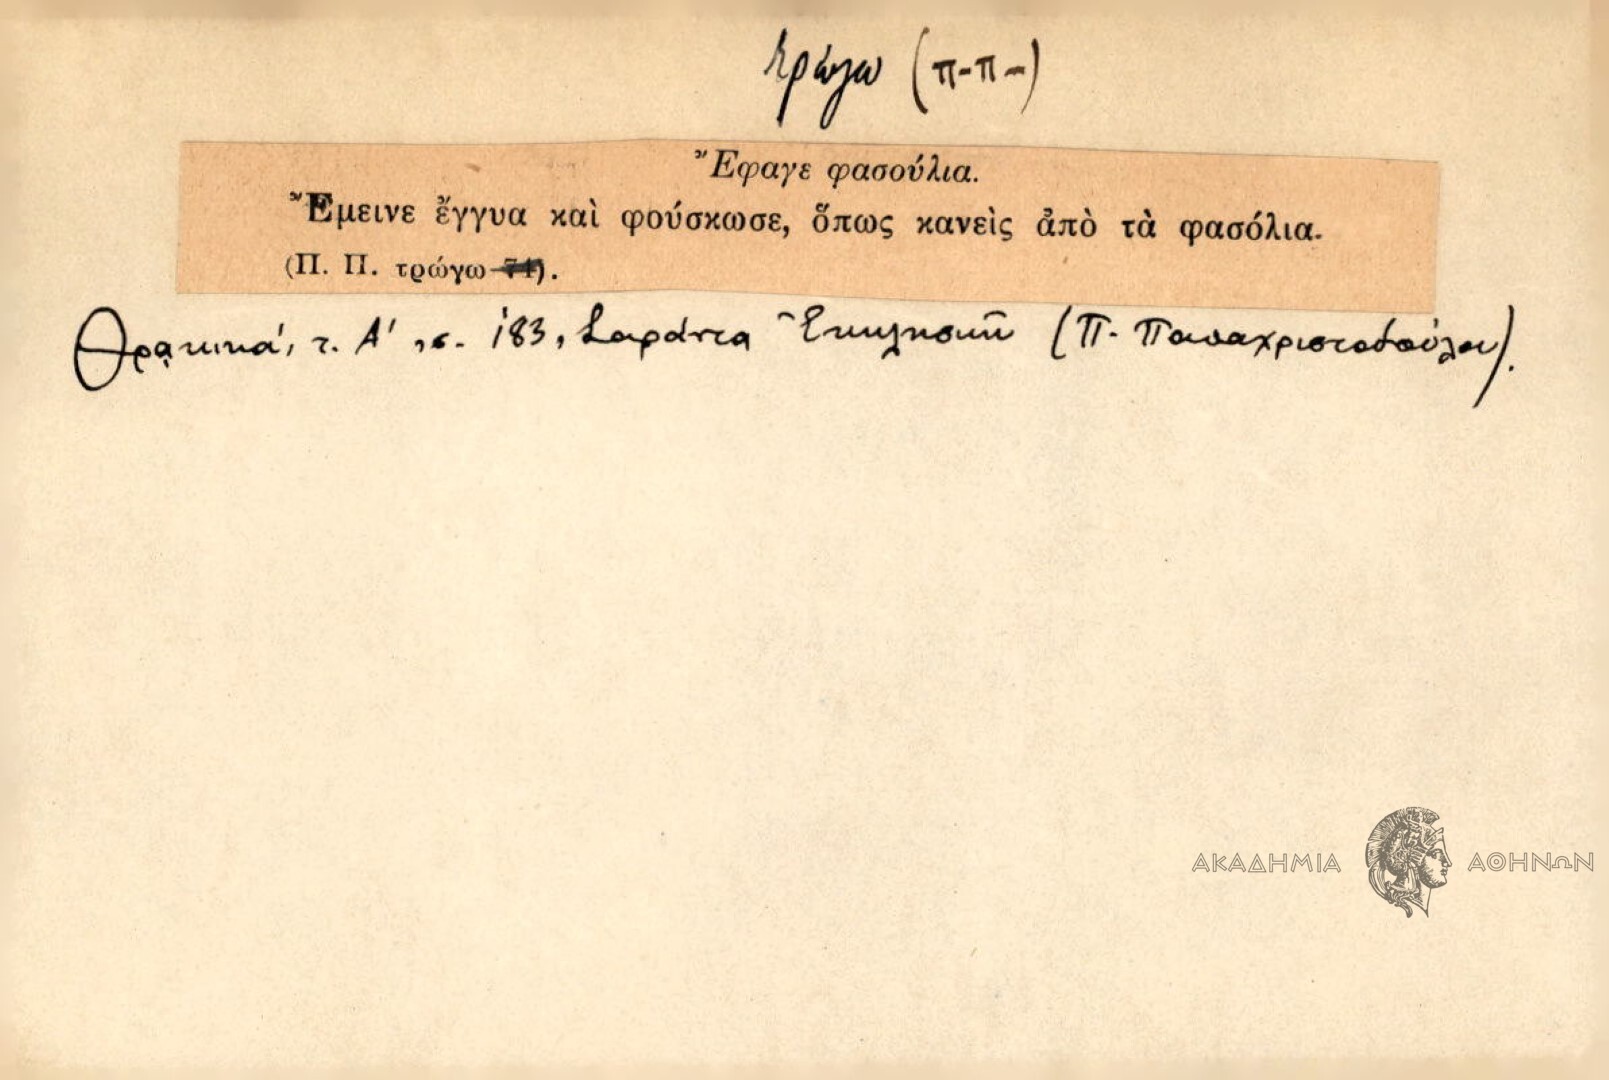 τρώγω (π-π-)
Ἔφαγε φασούλια.
Ἔμεινε ἔγγυα καὶ φούσκωσε, ὅπως κανεὶς ἀπὸ τὰ φασόλια.
(Π. Π. τρώγω 74).
Θρακικά, τ. Α΄, σ. 183, Σαράντα Ἐκκλησιῶν (Π. Παπαχριστοδούλου).
ΑΚΑΔΗΜΙΑ ΑΘΗΝΩΝ